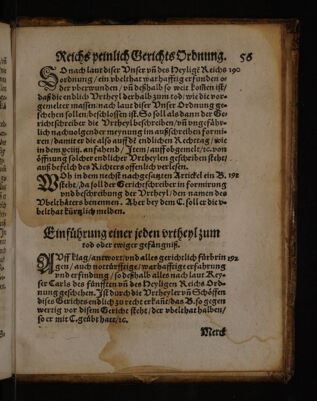 Reichs peinlich Gerichts Ordnung. 56
SO nach laut diser Unser vñ des Heyligẽ Reichs 190
ordnung / ein ubelthat warhafftig erfunden o-
der uberwunden / vñ deßhalb so weit kom̃en ist /
daß die endlich Urtheyl derhalb zum tod / wie die vor-
gemelter massen / nach laut diser Unser Ordnung ge-
schehen sollen / beschlossen ist. So soll als dann der Ge-
richtschreiber die Urtheyl beschreiben / vñ ungefähr-
lich nachvolgender meynung im außschreiben formi-
ren / damit er die also auff dẽ endlichen Rechttag / wie
im dem pcitij. anfahend / Item / auff obgemelt / ꝛc. von
öffnung solcher endlicher Urtheylen geschriben steht /
auß befelch des Richters offentlich verlesen.
WO in dem nechst nachgesatzten Artickel ein B. 191
stehe / da soll der Gerichschreiber in formirung
und beschreibung der Urtheyl / den namen des
Ubelthäters benennen. Aber bey dem C. soll er die v-
belthat kürtzlich melden.
Einführung einer jeden vrtheyl zum
tod oder ewiger gefängnuß.
AUff klag / antwort / und alles gerichtlich fürbrin 192
gen / auch notturfftige / warhafftige erfahrung
und erfindung / so deßhalb alles nach laut Key-
ser Carls des fünfften vñ des Heyligen Reichs Ord-
nung geschehen. Ist durch die Urtheyler vñ Schöffen
dises Gerichts endlich zu recht erkañt / das B. so gegen
wertig vor disem Gericht stehet / der vbelthat halben /
so er mit C. geübt hatt / ꝛc.
Merck